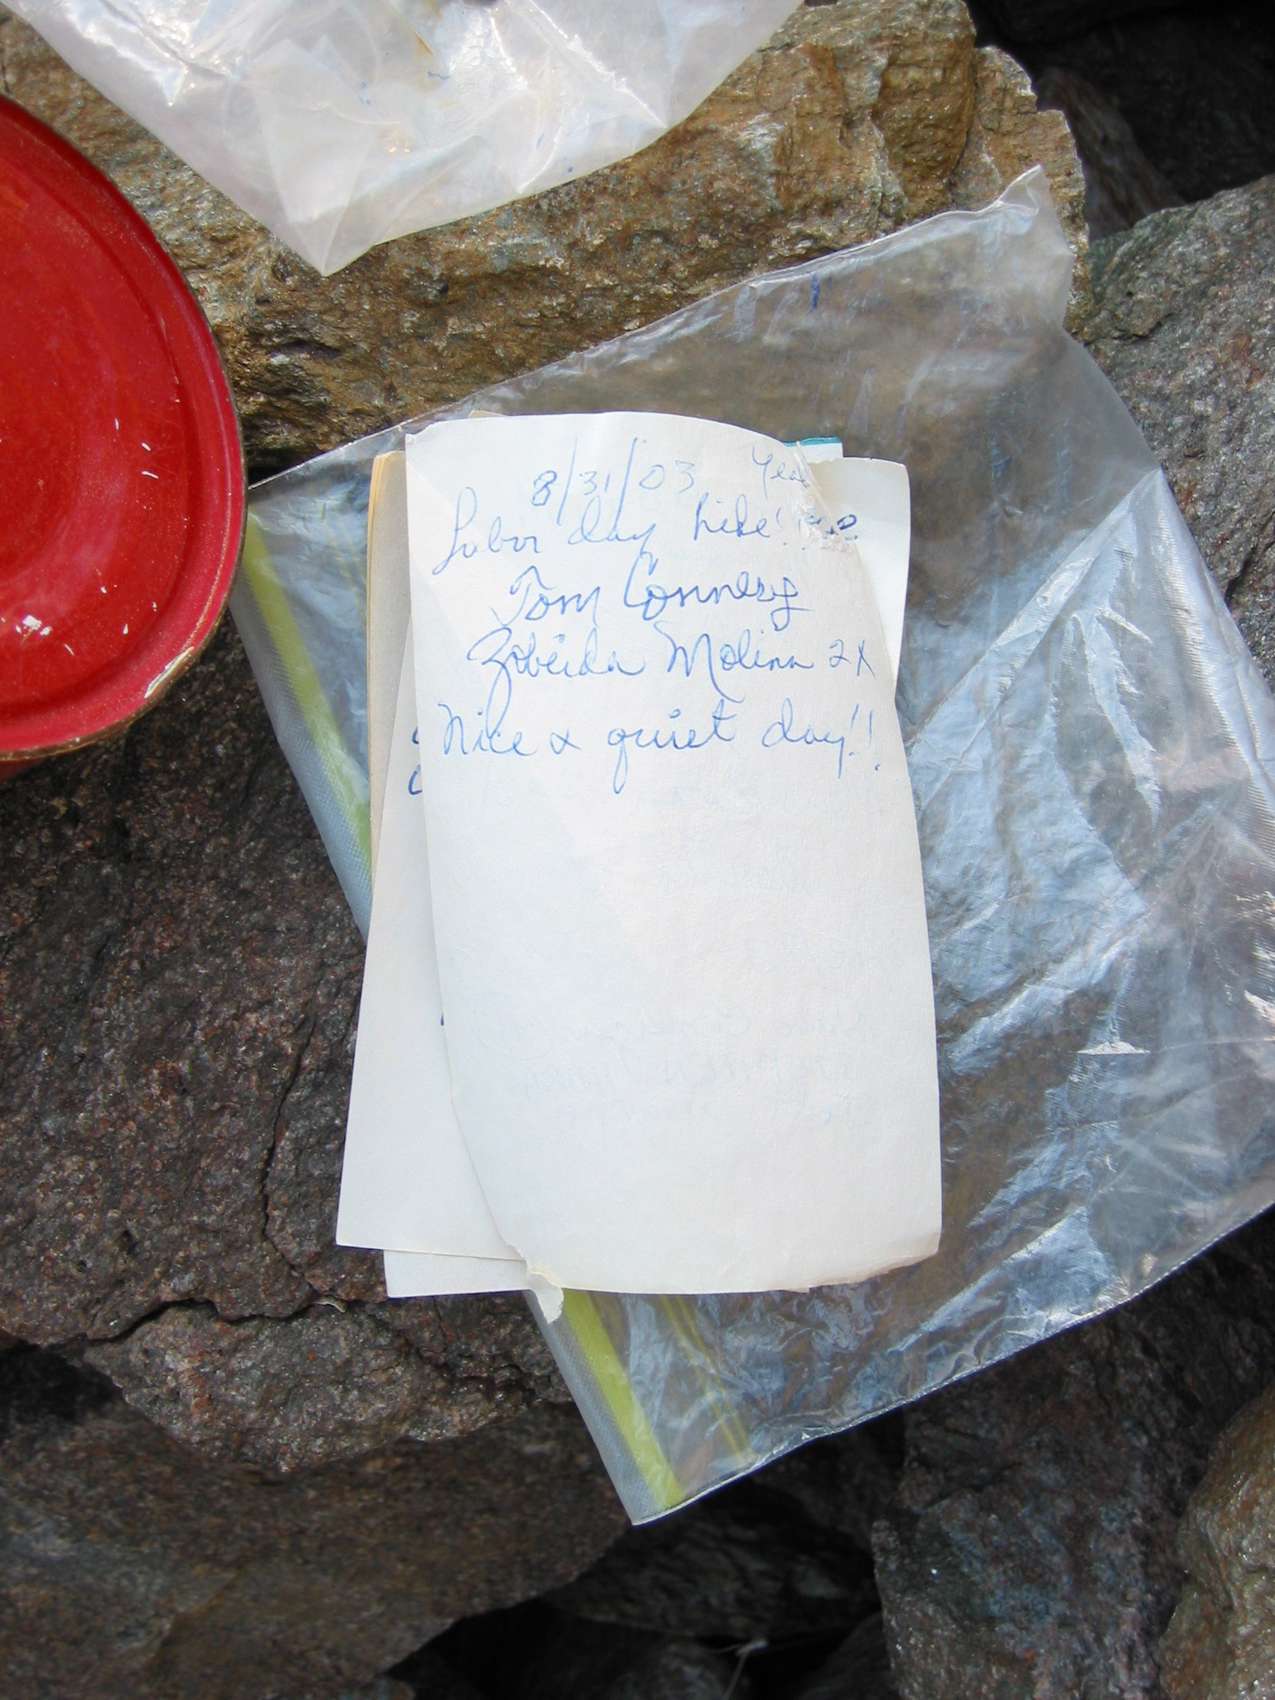 8/31/03
Labor day hike!
Tom Connery
Zobeida Molina 2X
Nice & quiet day!!